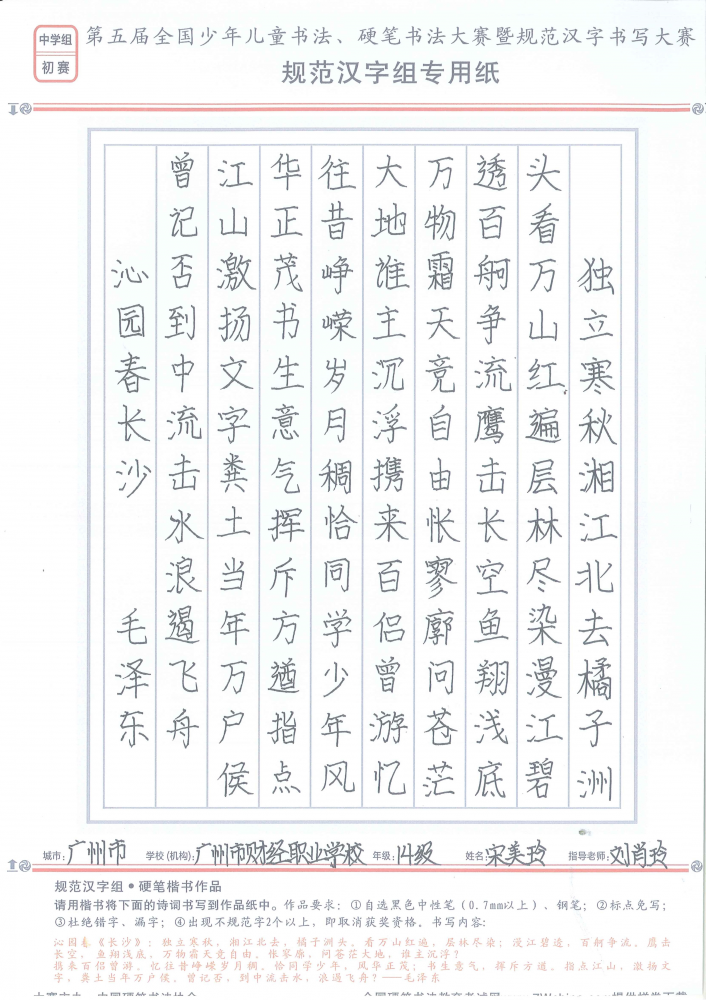 中学组
初赛
第五届全国少年儿童书法、硬笔书法大赛暨规范汉字书写大赛
规范汉字组专用纸
独立寒秋湘江北去橘子洲
头看万山红遍层林尽染漫江碧
透百舸争流鹰击长空鱼翔浅底
万物霜天竞自由怅寥廓问苍茫
大地谁主沉浮携来百侣曾游忆
往昔峥嵘岁月稠恰同学少年风
华正茂书生意气挥斥方遒指点
江山激扬文字粪土当年万户侯
曾记否到中流击水浪遏飞舟
沁园春长沙 毛泽东
城市:广州市 学校(机构):广州市财经职业学校 年级:14级 姓名:宋美玲 指导老师:刘肖玲
规范汉字组•硬笔楷书作品
请用楷书将下面的诗词书写到作品纸中。作品要求：①自选黑色中性笔（0.7mm以上）、钢笔；②标点免写；
③杜绝错字、漏字；④出现不规范字2个以上，即取消获奖资格。书写内容：
沁园春《长沙》：独立寒秋，湘江北去，橘子洲头。看万山红遍，层林尽染；漫江碧透，百舸争流。鹰击
长空，鱼翔浅底，万物霜天竞自由。怅寥廓，问苍茫大地，谁主沉浮？
携来百侣曾游，忆往昔峥嵘岁月稠。恰同学少年，风华正茂；书生意气，挥斥方遒。指点江山，激扬文
字，粪土当年万户侯。曾记否，到中流击水，浪遏飞舟？——毛泽东